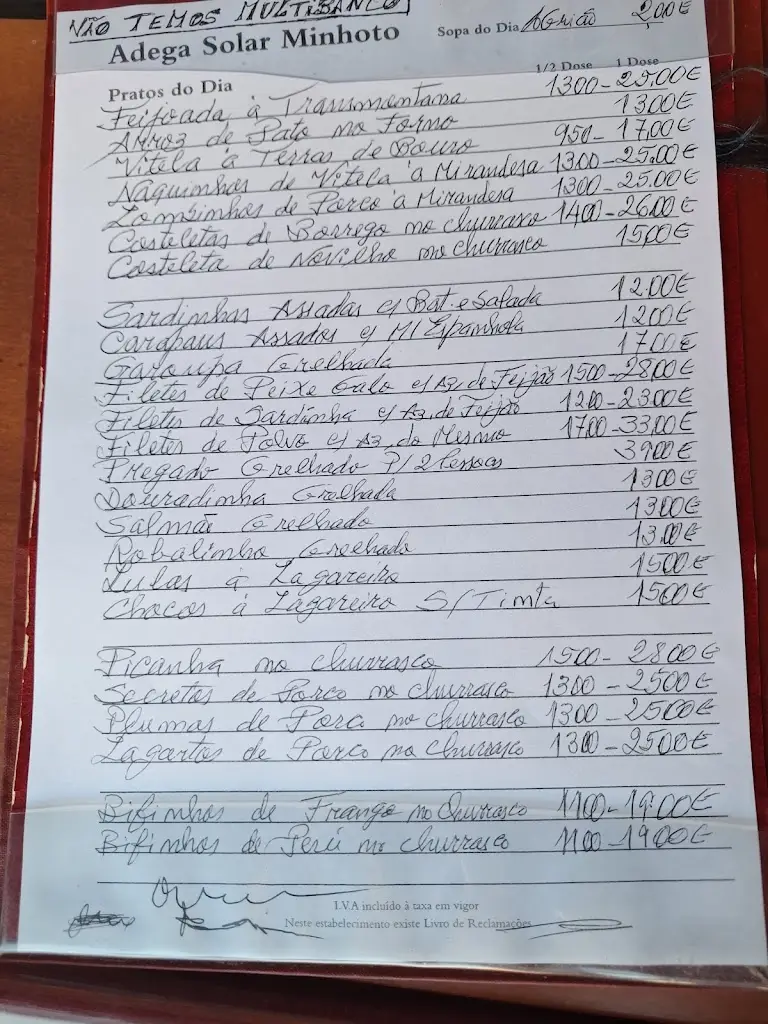 NÃO TEMOS MULTIBANCO
Adega Solar Minhoto Sopa do Dia Agrião 2,00€
Pratos do Dia 1/2 Dose 1 Dose
Feijoada à Transmontana 1300-25,00€
Arroz de Pato no Forno 1300€
Vitela à Terras de Bouro 950-17,00€
Naquinhos de Vitela à Mirandesa 1300-25,00€
Lombinhos de Porco à Mirandesa 1300-25,00€
Costeletas de Borrego no churrasco 1400-26,00€
Costeleta de Novilho no churrasco 15,00€
Sardinhas Assadas c/ Bat. e Salada 12.00€
Carapaus Assados c/ Ml Espanhola 1200€
Garoupa Grelhada 17,00€
Filetes de Peixe Galo c/ Az, de Feijão 1500-28,00€
Filetes de Sardinha c/ Az, de Feijão 1200-23,00€
Filetes de Polvo c/ Az do Mesmo 1700-33,00€
Pregado Grelhado P/ 2 Pessoas 3900€
Douradinha Grelhada 1300€
Salmão Grelhado 1300€
Robalinho Grelhado 13,00€
Lulas à Lagareiro 1500€
Chocos à Lagareiro S/ Tinta 1500€
Picanha no churrasco 1500-2800€
Secretos de Porco no churrasco 1300-2500€
Plumas de Porco no churrasco 1300-2500€
Lagartos de Porco no churrasco 1300-2500€
Bifinhos de Frango no Churrasco 1100-19,00€
Bifinhos de Perú no churrasco 1100-19,00€
I.V.A incluído à taxa em vigor
Neste estabelecimento existe Livro de Reclamações